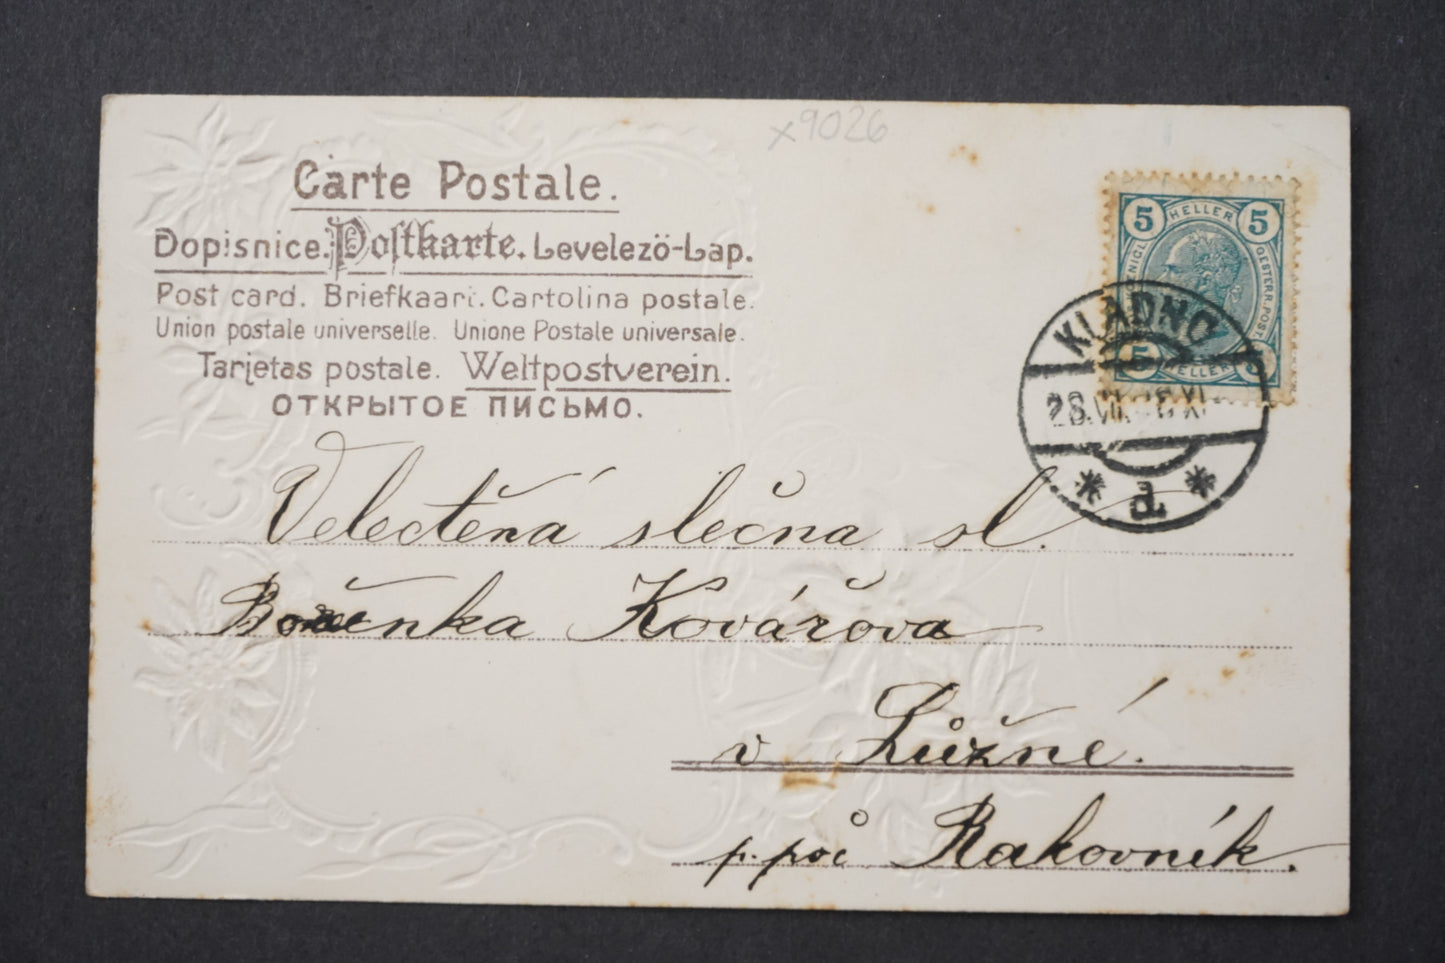 x9026
Carte Postale.
Dopisnice. Postkarte. Levelezö-Lap.
Post card. Briefkaart. Cartolina postale.
Union postale universelle. Unione Postale universale.
Tarjetas postale. Weltpostverein.
ОТКРЫТОЕ ПИСЬМО.
5 HELLER 5
OESTERR. POST
5 HELLER 5
KLADNO
28.VII. XI
d
Velectěná slečna sl.
Boženka Kovářova
v Lůžné.
p. poč Rakovník.